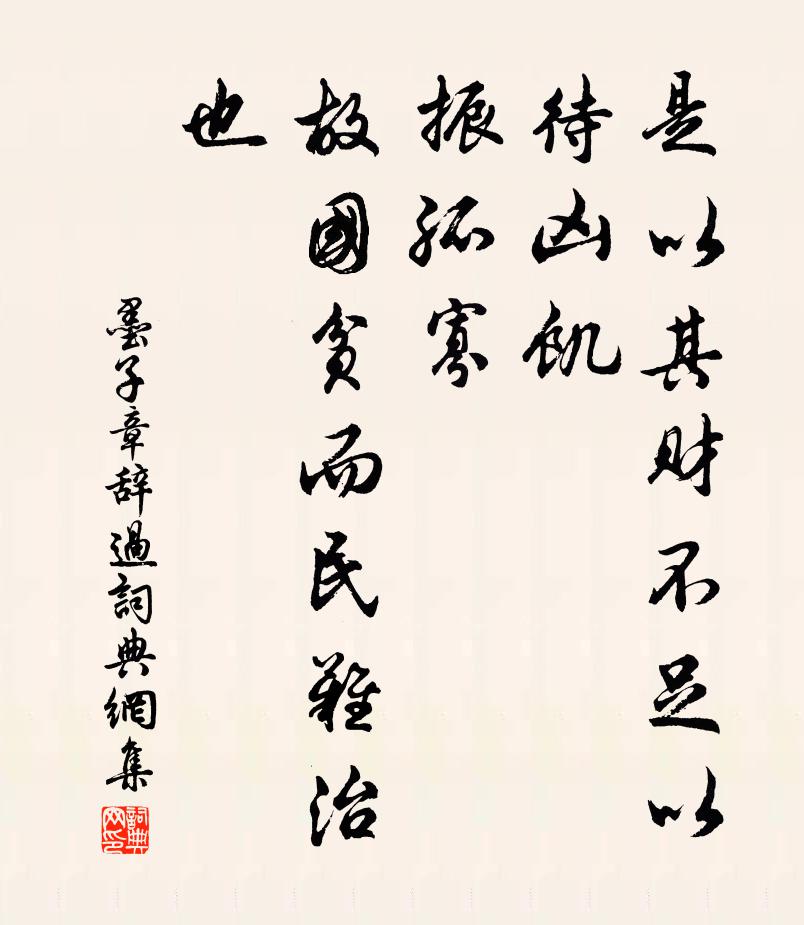 是以其財不足以
待凶飢
振孤寡
故國貧而民難治
也
墨子章辞過詞典網集
詞典
网印